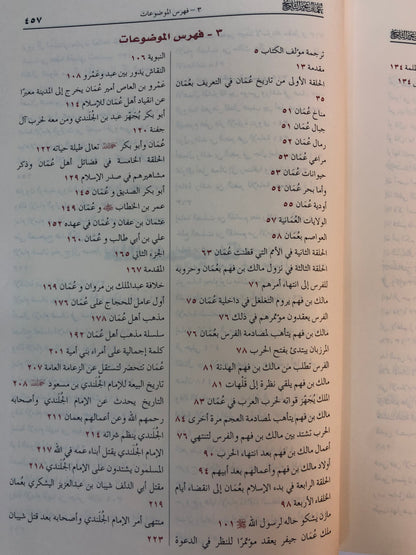 ٣ - فهرس الموضوعات
٤٥٧
٣ - فهرس الموضوعات
ترجمة مؤلف الكتاب ٥
مقدمة ١٣
الحلقة الأولى من تاريخ عُمَان في التعريف بعُمَان
٣٥
مناخ عُمَان ٥١
جبال عُمَان ٥١
رمال عُمَان ٥٢
مراعي عُمَان ٥٣
حيوانات عُمَان ٥٣
وما يجر عُمَان ٥٤
أودية عُمَان ٥٥
الولايات العُمَانية ٥٧
العواصم بعُمَان ٥٨
الحلقة الثانية في الأمم التي قطنت عُمَان ٦٣
الحلقة الثالثة في نزول مالك بن فهم بعُمَان وحروبه
للفرس إلى انتهاء أمرهم ٧١
مالك بن فهم يروم التغلغل في داخلية عُمَان ٧٥
الفرس يعقدون مؤتمرهم في ذلك ٧٦
مالك بن فهم يتأهب لمصادمة الفرس بعُمَان ٧٦
المرزبان يبتدئ بفتح الحرب ٧٨
الفرس تطلب من مالك بن فهم الهدنة ٨١
مالك بن فهم يلقي نظرة إلى قلهات ٨١
الملك يُجهّز قواته لحرب العرب في عُمَان ٨٣
مالك بن فهم يتأهب لمصادمة العجم مرة أخرى ٨٤
الحرب تشتد بين مالك بن فهم والفرس لتنتهي ٨٦
أعمال مالك بن فهم بعد انتهاء الحرب ٩٠
أولاد مالك بن فهم وأعمالهم بعد أبيهم ٩٤
الحلقة الرابعة في بدء الإسلام بعُمَان إلى انقضاء أيام
الخلفاء الأربعة ٩٨
مازن يشكو حاله لرسول الله ﷺ ١٠١
ملك عُمَان جيفر يعقد مؤتمرًا للنظر في الدعوة
النبوية ١٠٦
النقاش يدور بين عبد وعَمْرو ١٠٨
عَمْرو بن العاص أمير عُمَان يخرج إلى المدينة معبرًا
عن انقياد أهل عُمَان للإسلام ١١٤
أبو بكر يُجهّز عبد بن الجلندي ومن معه لحرب آل
جفنة ١٢٠
عُمَان وأبو بكر ﷺ تعالى طيلة حياته ١٢٢
الحلقة الخامسة في فضائل أهل عُمَان وذكر
مشاهيرهم في صدر الإسلام ١٢٩
أبو بكر الصديق وعُمَان ١٤٥
عمر بن الخطاب وعُمَان ١٤٩
عثمان بن عفان وعُمَان في عهده ١٥٢
علي بن أبي طالب وعُمَان ١٦٠
الجزء الثاني ١٦٥
المقدمة ١٦٧
خلافة عبدالملك بن مروان وعُمَان ١٦٩
أول عامل للحجاج على عُمَان ١٧٦
مذهب أهل عُمَان ١٧٨
سلسلة مذهب أهل عُمَان ١٩٢
كلمة إجمالية على أمراء بني أمية ٢٠١
عُمَان تتحضر لتستقل عن الزعامة العامة ٢٠٧
تاريخ البيعة للإمام الجلندي بن مسعود ٢٠٨
التاريخ يحدث عن الإمام الجلندي وأصحابه
رحمهم الله وعن أعمالهم بعمان ٢١١
الجلندي ينظم شراته ٢١٤
الإمام الجلندي يقتل أبناء عمه في الله ٢١٧
المسلمون يشتدون على الإمام الجلندي ٢١٨
مقتل أبي الدلف شيبان بن عبدالعزيز اليشكري بعُمَان
٢١٩
منتهى أمر الإمام الجُلندي وأصحابه بعد قتل شيبان
٢٢٣